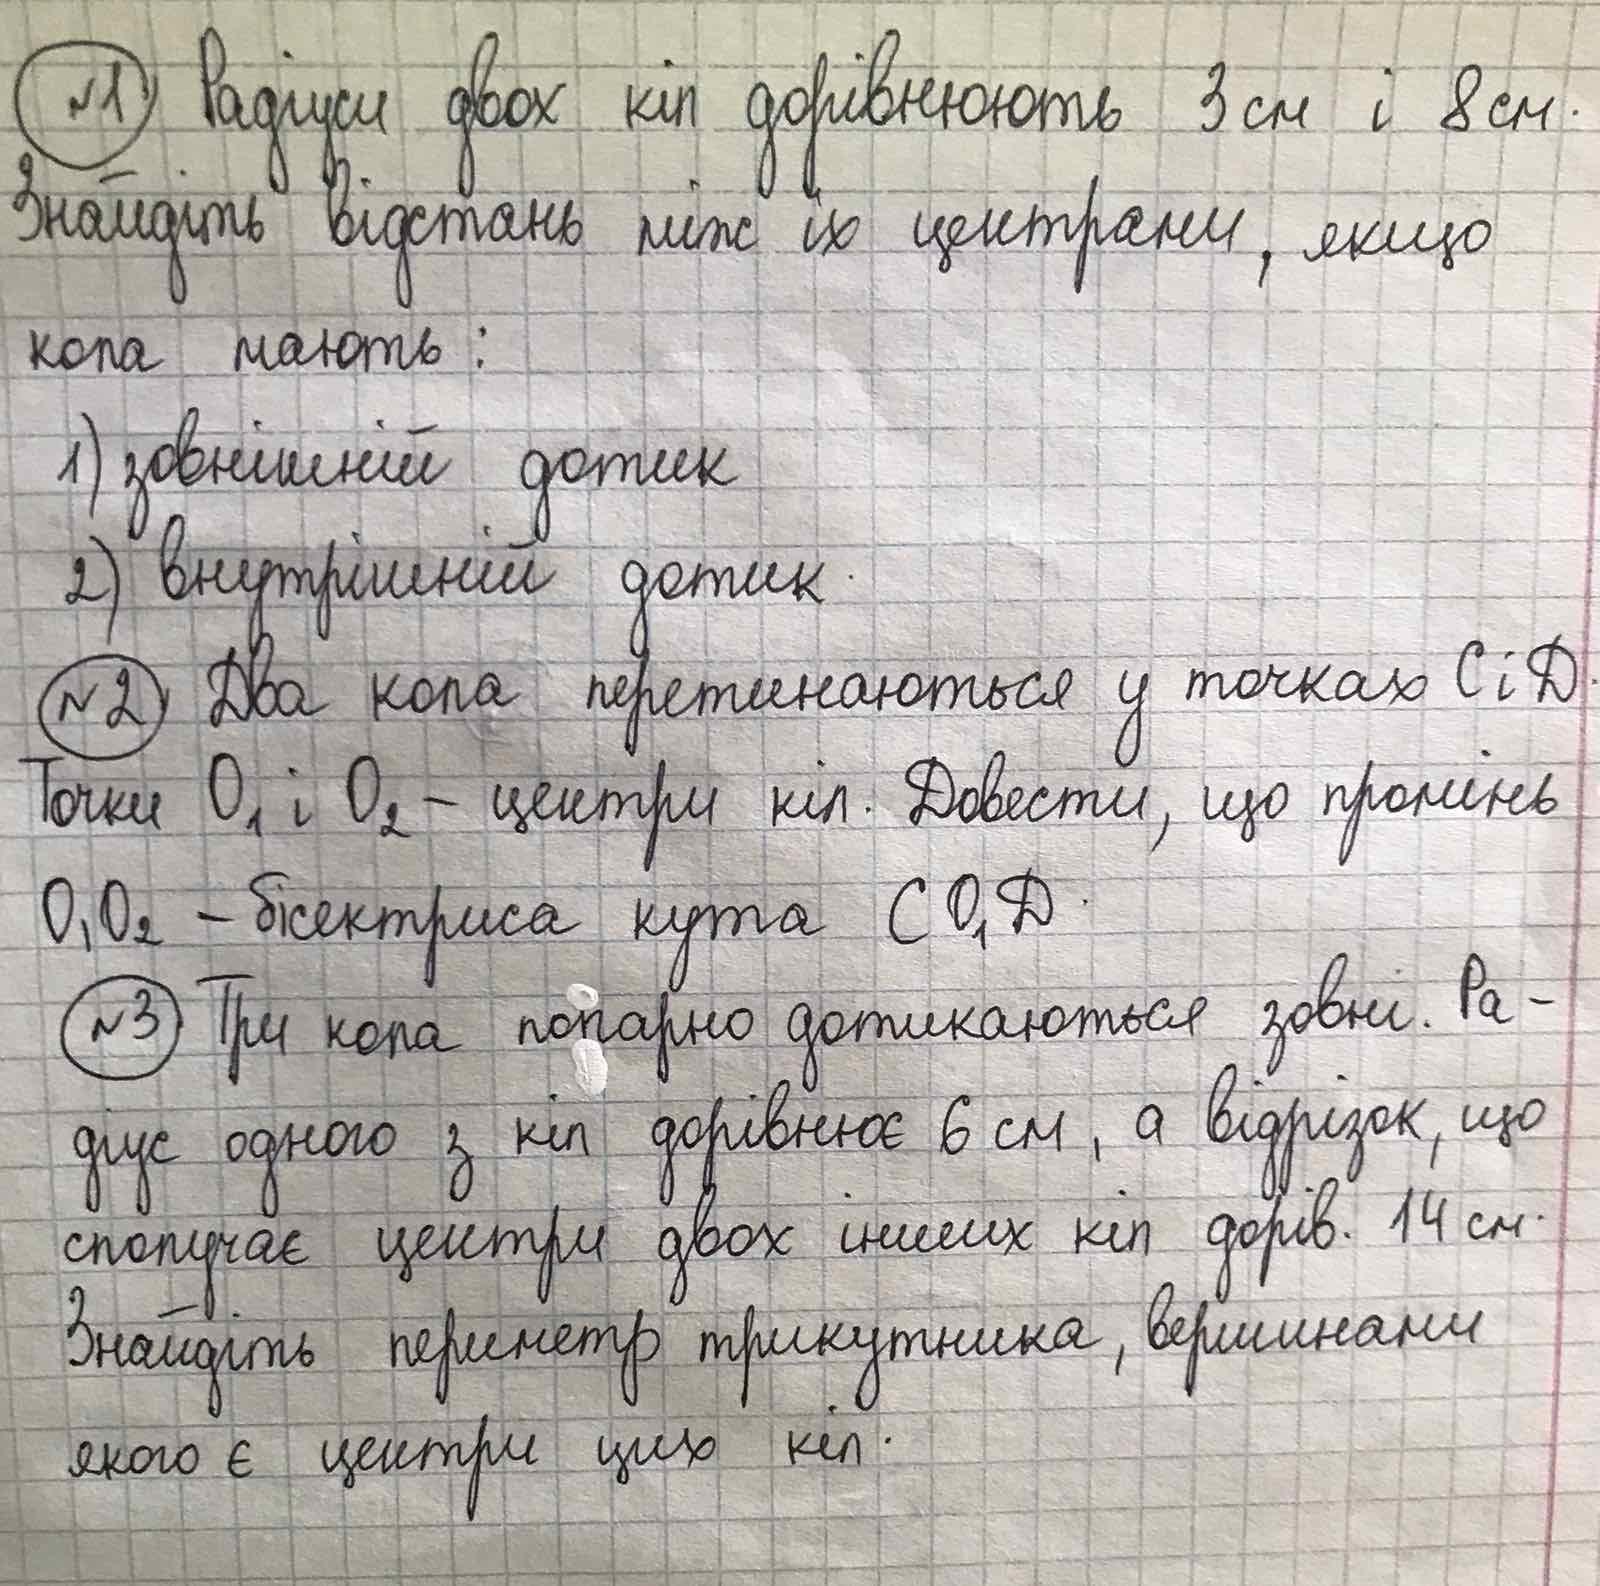 №1 Радіуси двох кіл дорівнюють 3 см і 8 см.
Знайдіть відстань між їх центрами, якщо
кола мають:
1) зовнішній дотик
2) внутрішній дотик.
№2 Два кола перетинаються у точках C і D.
Точки O₁ і O₂ – центри кіл. Довести, що промінь
O₁O₂ – бісектриса кута CO₁D.
№3 Три кола попарно дотикаються зовні. Ра-
діус одного з кіл дорівнює 6 см, а відрізок, що
сполучає центри двох інших кіл дорів. 14 см.
Знайдіть периметр трикутника, вершинами
якого є центри цих кіл.